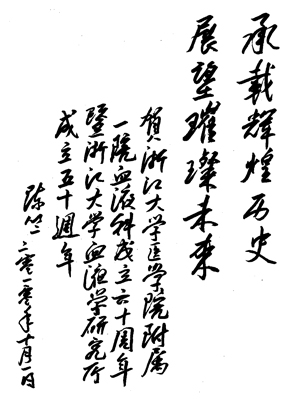 承载辉煌历史
展望璀璨未来
贺浙江大学医学院附属
一院血液科成立六十周年
暨浙江大学血液学研究所
成立五十週年
陈竺
二零一零年十月一日